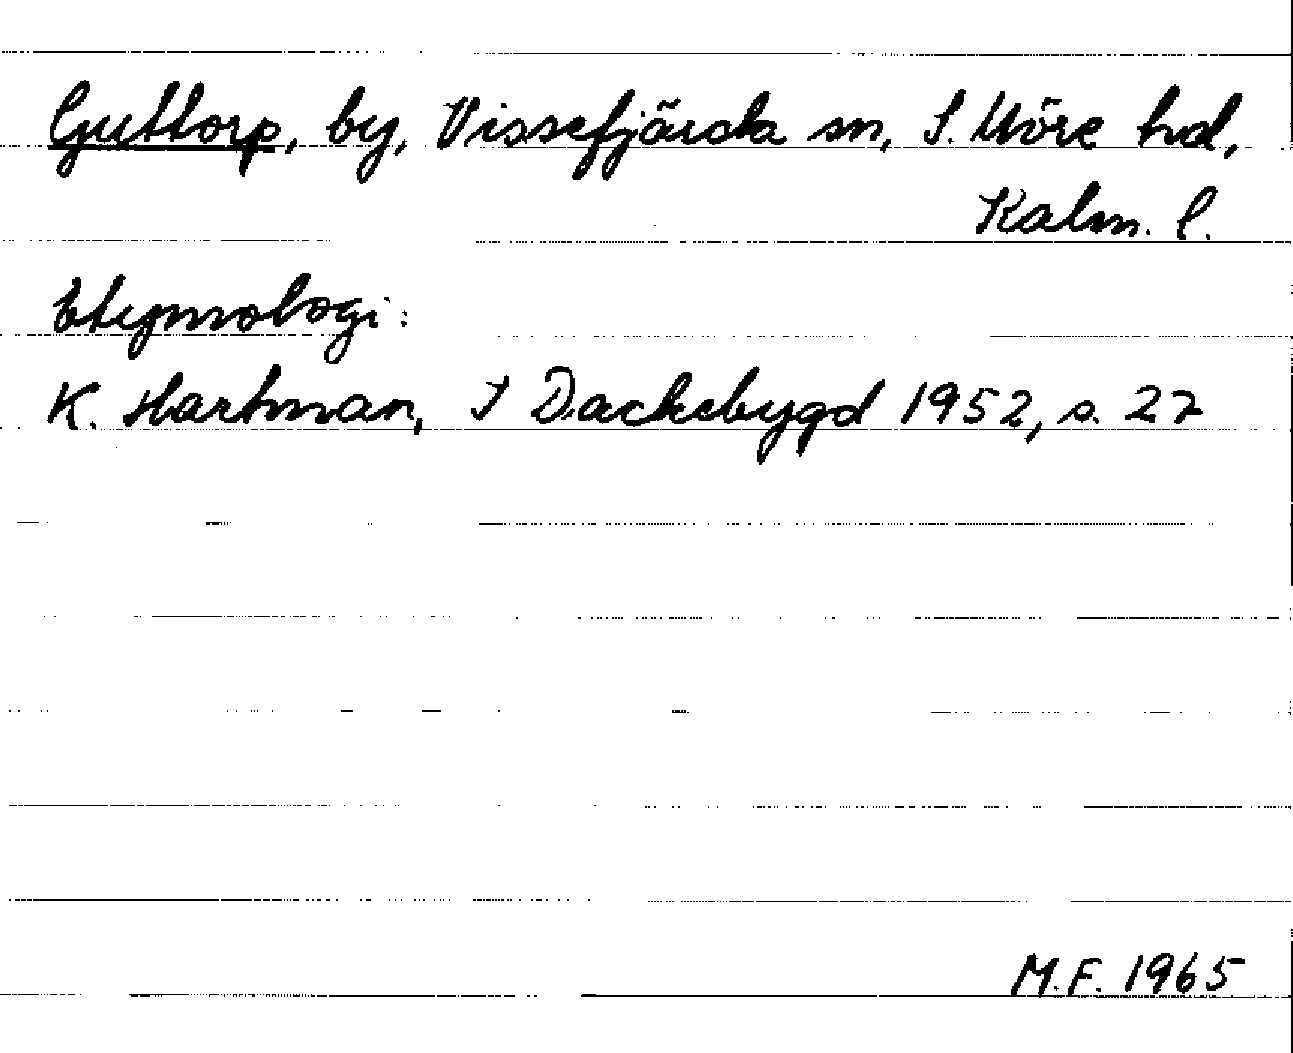 Guttorp, by, Vissefjärda sn, S. Möre hd,
Kalm. l.
Etymologi:
K. Hartman, I Dackebygd 1952, s. 27
M.F. 1965